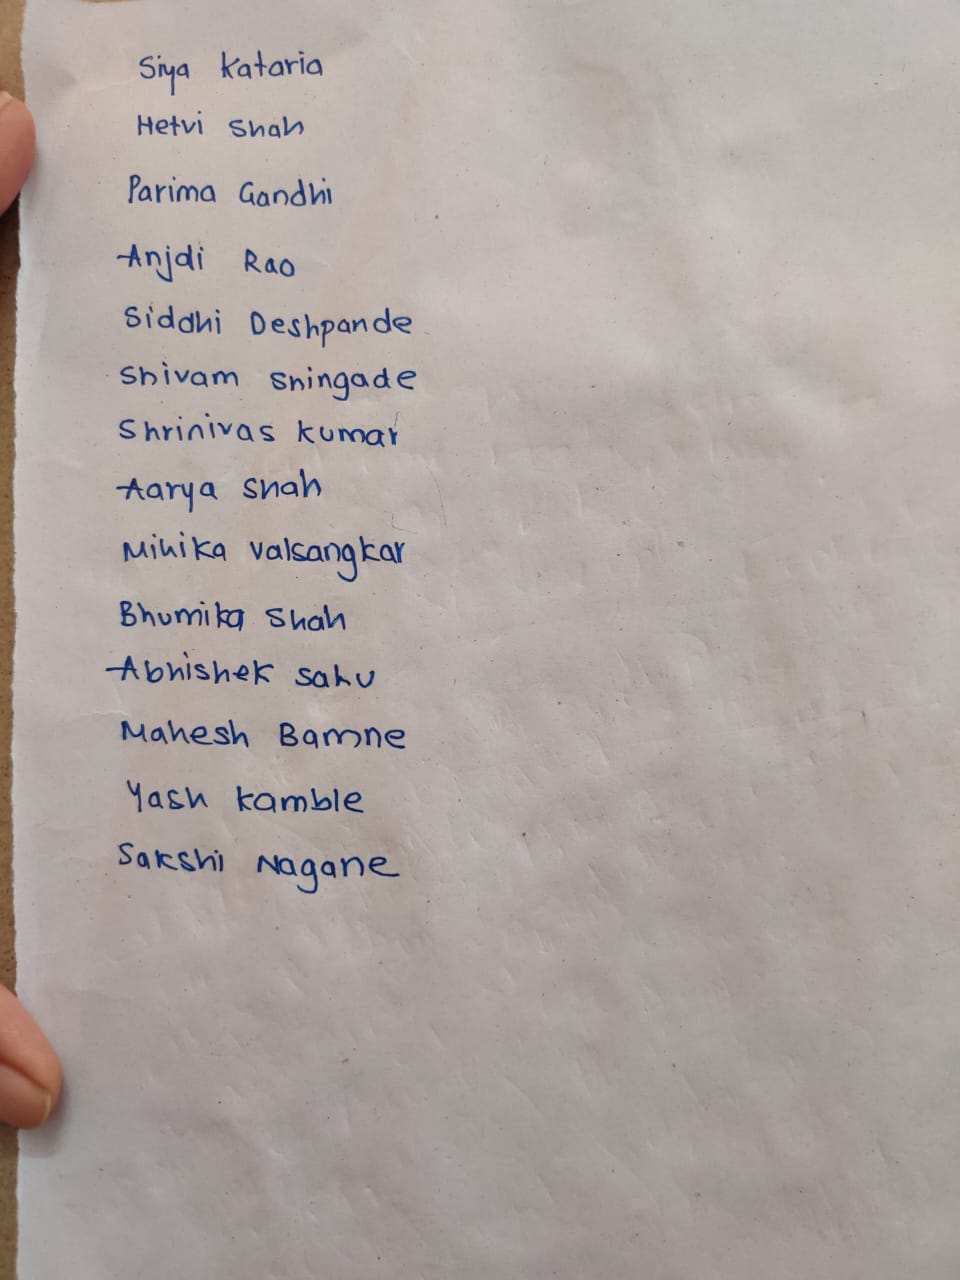 Siya Kataria
Hetvi Shah
Parima Gandhi
Anjali Rao
Siddhi Deshpande
Shivam Shingade
Shrinivas Kumar
Aarya Shah
Mihika Valsangkar
Bhumika Shah
Abhishek Sahu
Mahesh Bamne
Yash Kamble
Sakshi Nagane